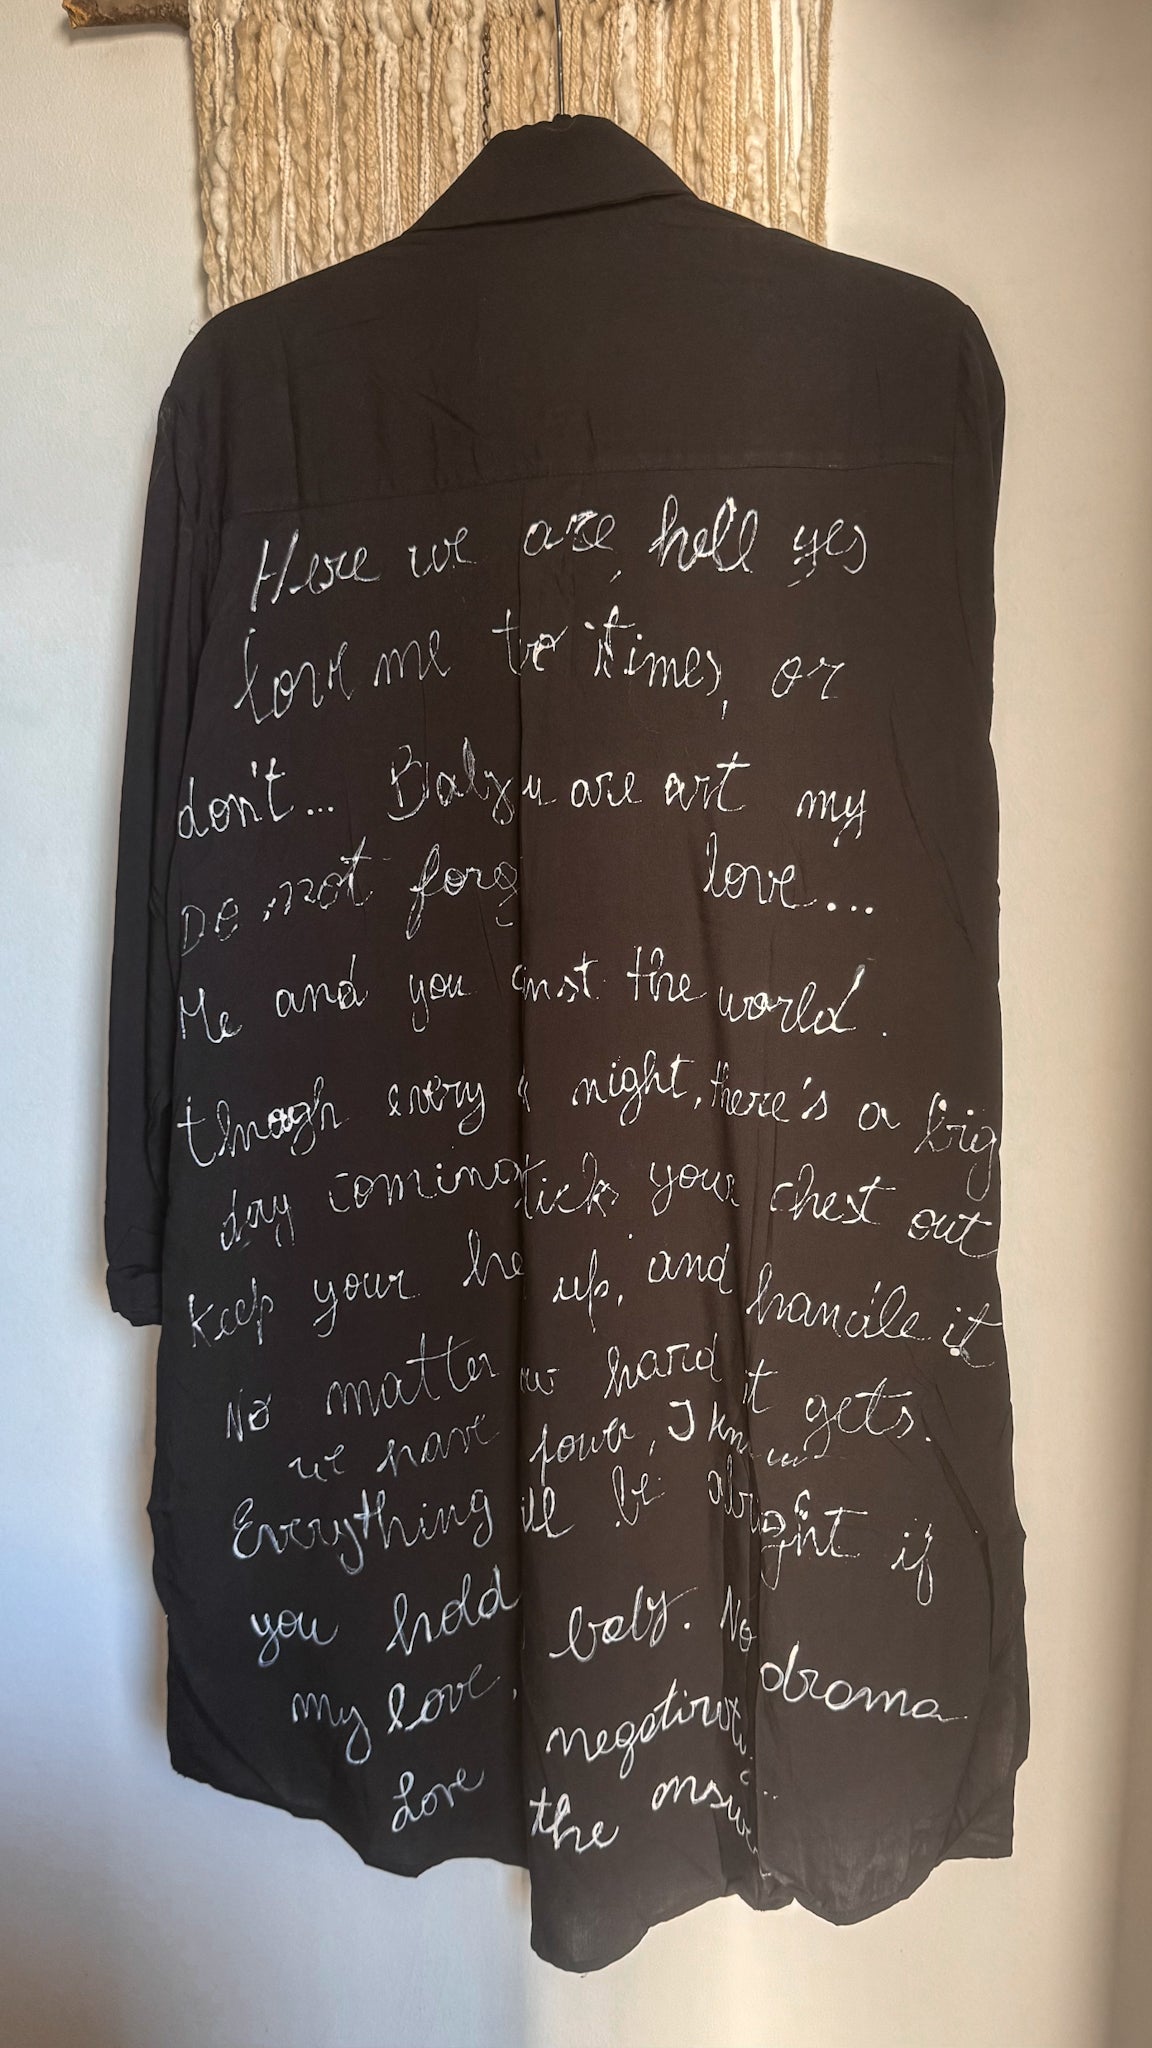 Here we are, hell yes
Love me to times, or
don't... Baby u are art my
Do not forg love...
Me and you inst the world.
though every night, there's a big
day coming stick your chest out
Keep your he up, and handle it
No matter ow hard it gets.
we have power, I know
Everything ill be alright if
you hold baby. No drama
my love, negativity...
Love the answ